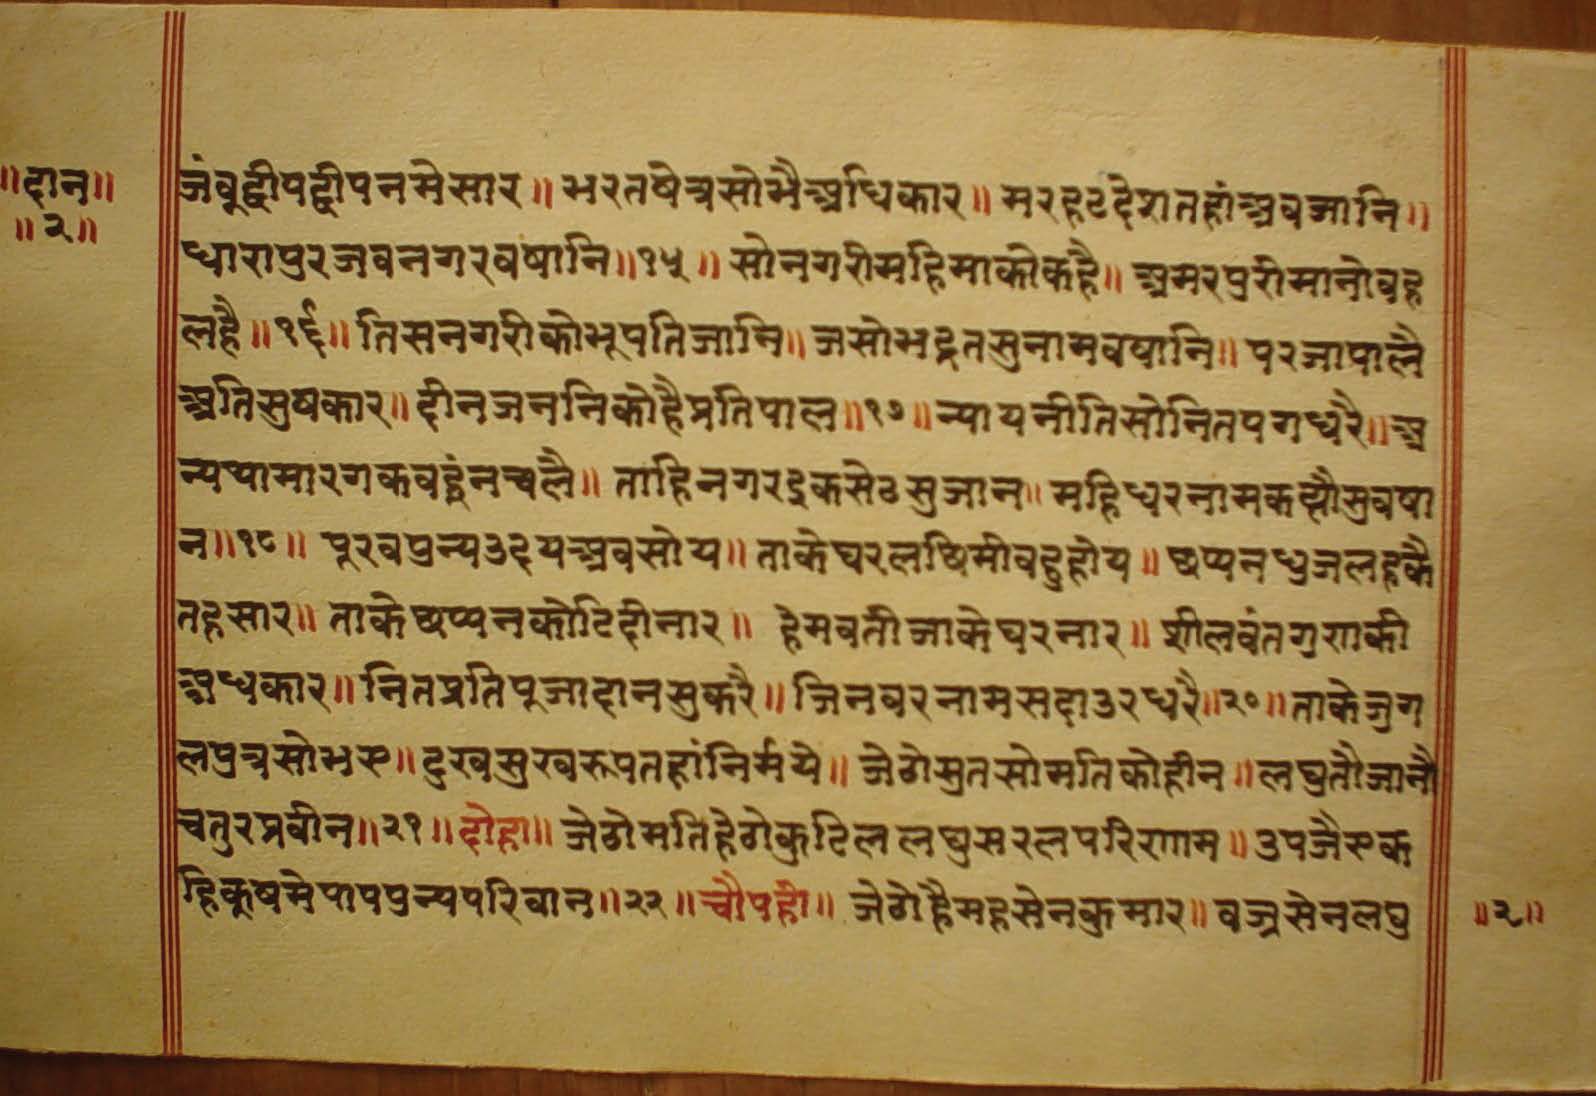 ॥दान॥
॥२॥
जंबूद्वीपद्वीपनमेसार॥ भरतषेत्रसोभैअधिकार॥ मरहटदेशतहांअवजानि॥
धारापुरजवनगरवषानि॥१५॥ सोनगरीमहिमाकोकहै॥ अमरपुरीमानोवह
लहै॥१६॥ तिसनगरीकोभूपतिजानि॥ जसोभद्रतसुनामवषानि॥ परजापालै
अतिसुषकार॥ दीनजननिकोहैप्रतिपाल॥१७॥ न्यायनीतिसोनितपगधरै॥ अ
न्यथामारगकवहूंनचलै॥ ताहिनगरइकसेठसुजान॥ महिधरनामकह्यौसुवषा
न॥१८॥ पूरवपुन्यउदयअवसोय॥ ताकेघरलछिमीवहुहोय॥ छप्पनधुजलहकै
तहसार॥ ताकेछप्पनकोटिदीनार॥ हेमवतीजाकेघरनार॥ शीलवंतगुणकी
अधकार॥ नितप्रतिपूजादानसुकरै॥ जिनवरनामसदाउरधरै॥२०॥ ताकेजुग
लपुत्रसोभए॥ दुखसुखरूपतहांनिर्मये॥ जेठोसुतसोमतिकोहीन॥ लघुतौजानौ
चतुरप्रवीन॥२१॥ दोहा॥ जेठोमतिहेठोकुटिल लघुसरलपरिणाम॥ उपजैएक
हिकूषमेपापपुन्यपरिवान॥२२॥ चौपही॥ जेठोहैमहसेनकुमार॥ वज्रसेनलघु
॥२॥